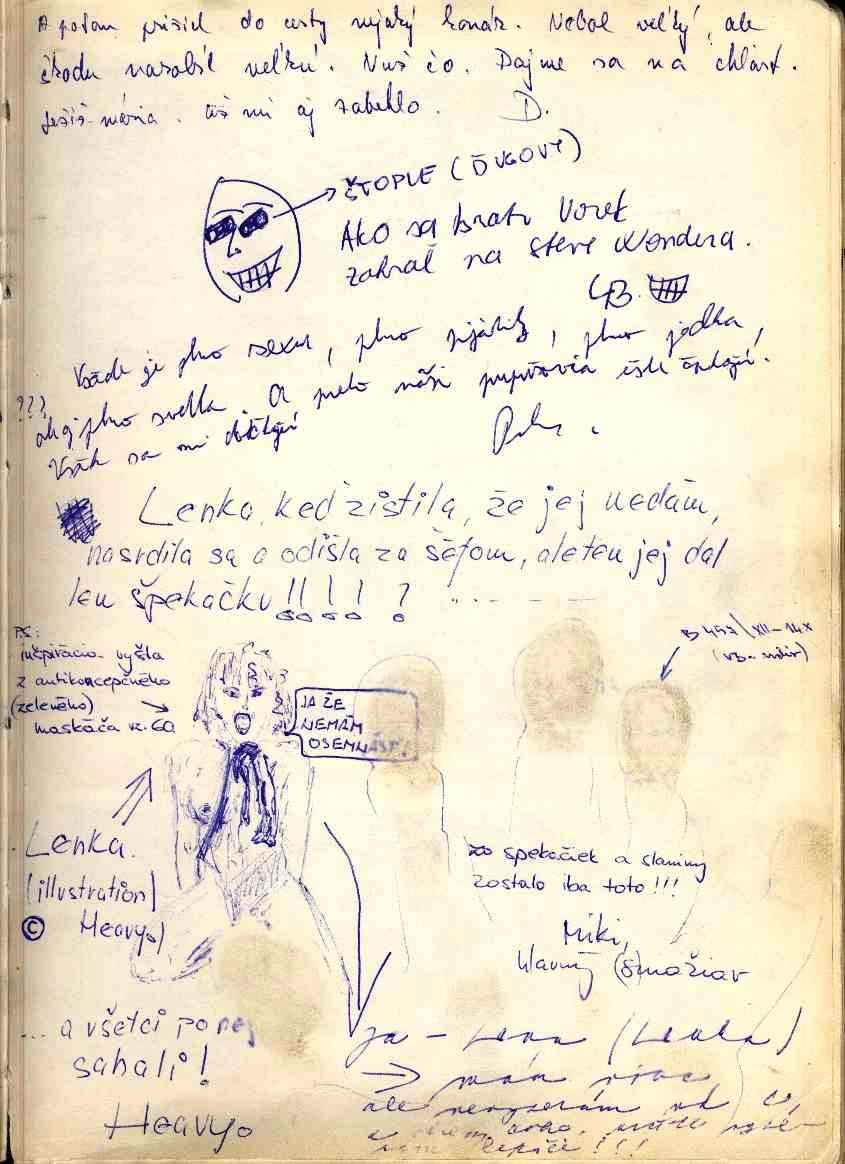 A potom prišiel do cesty nejaký konár. Nebol veľký, ale
škodu narobil veľkú. Nuž čo. Dajme sa na chlast.
Ježiš-mária. Už mi aj zabehlo. D.
ŠTOPLE (ĎUGOVE)
AKO sa bratr Vorek
zahral na Steve Wondera.
Všade je plno sexu, plno pijatiky, plno jedla,
???
aj plno svetla. A preto naši
Však sa mi
Lenka, keď zistila, že jej nedám,
nasrdila sa a odišla za šéfom, ale ten jej dal
len špekačku!!!!?
PS:
inšpirácia vyšla
z antikoncepčného
(zeleného)
maskáča vz. 60
JA ŽE
NEMÁM
OSEMNÁSŤ?
Lenka.
(illustration)
© Heavyo)
zo špekačiek a slaniny
zostalo iba toto!!!
Miki,
hlavný (s)mažiar
... a všetci po nej
sahali!
Heavyo
Ja - Lena (Lenka)
→ mám viac
ale
lepšie!!!